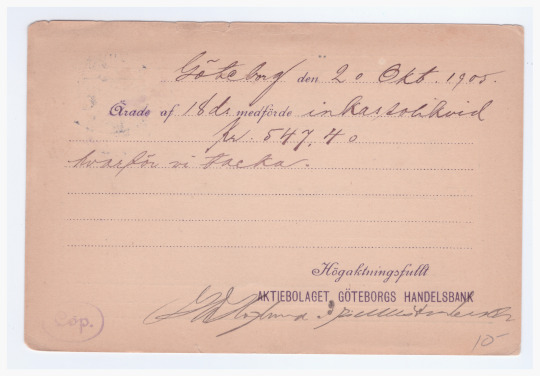 Göteborg den 20 Okt. 1905.
Ärade af 18 ds medförde inkassolikvid
kr. 547,40
hvarför vi tacka.
Högaktningsfullt
AKTIEBOLAGET GÖTEBORGS HANDELSBANK
Cop.
10